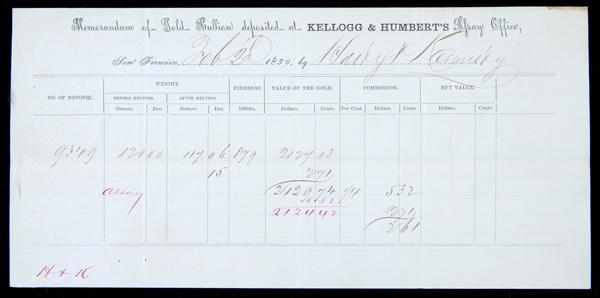 Memorandum of Gold Bullion deposited at KELLOGG & HUMBERT'S Assay Office,
San Francisco, Feb 2d 1859, by
NO. OF DEPOSIT. WEIGHT. FINENESS VALUE OF THE GOLD. COMMISSION. NET VALUE.
BEFORE MELTING. AFTER MELTING.
Ounces. Dec. Ounces. Dec. 1000ths. Dollars. Cents. Per Cent. Dollars. Cents. Dollars. Cents.
121 00 117 06 879 2127 03
15 2 71
assay 2129 74 1/4 5 32
5 32 2 71
2124 42 2 61
H & K